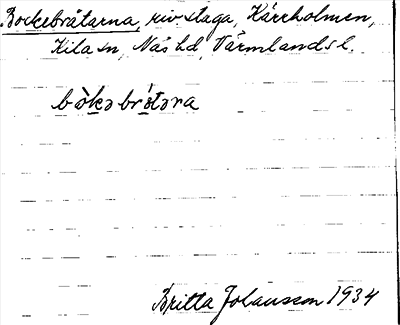 Bockebråtarna, riv.staga, Kärrholmen,
Kila sn, Näs hd, Värmlands l.
bo̊kə brɔ́təra
Britta Johansson 1934